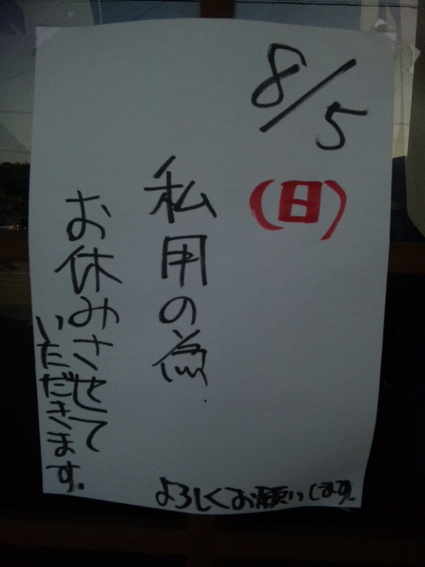 8/5
(日)
私用の為
お休みさせて
いただきます。
よろしくお願いします。